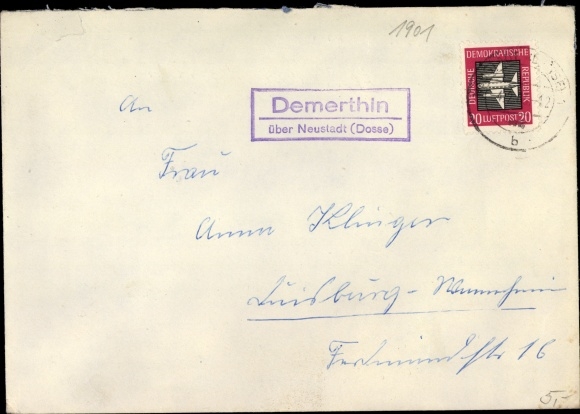 1901
DEUTSCHE DEMOKRATISCHE REPUBLIK
20 LUFTPOST 20
b
Demerthin
über Neustadt (Dosse)
An
Frau
Anna Klinger
Duisburg-Wannheim
Ferdinandstr 16
5,-